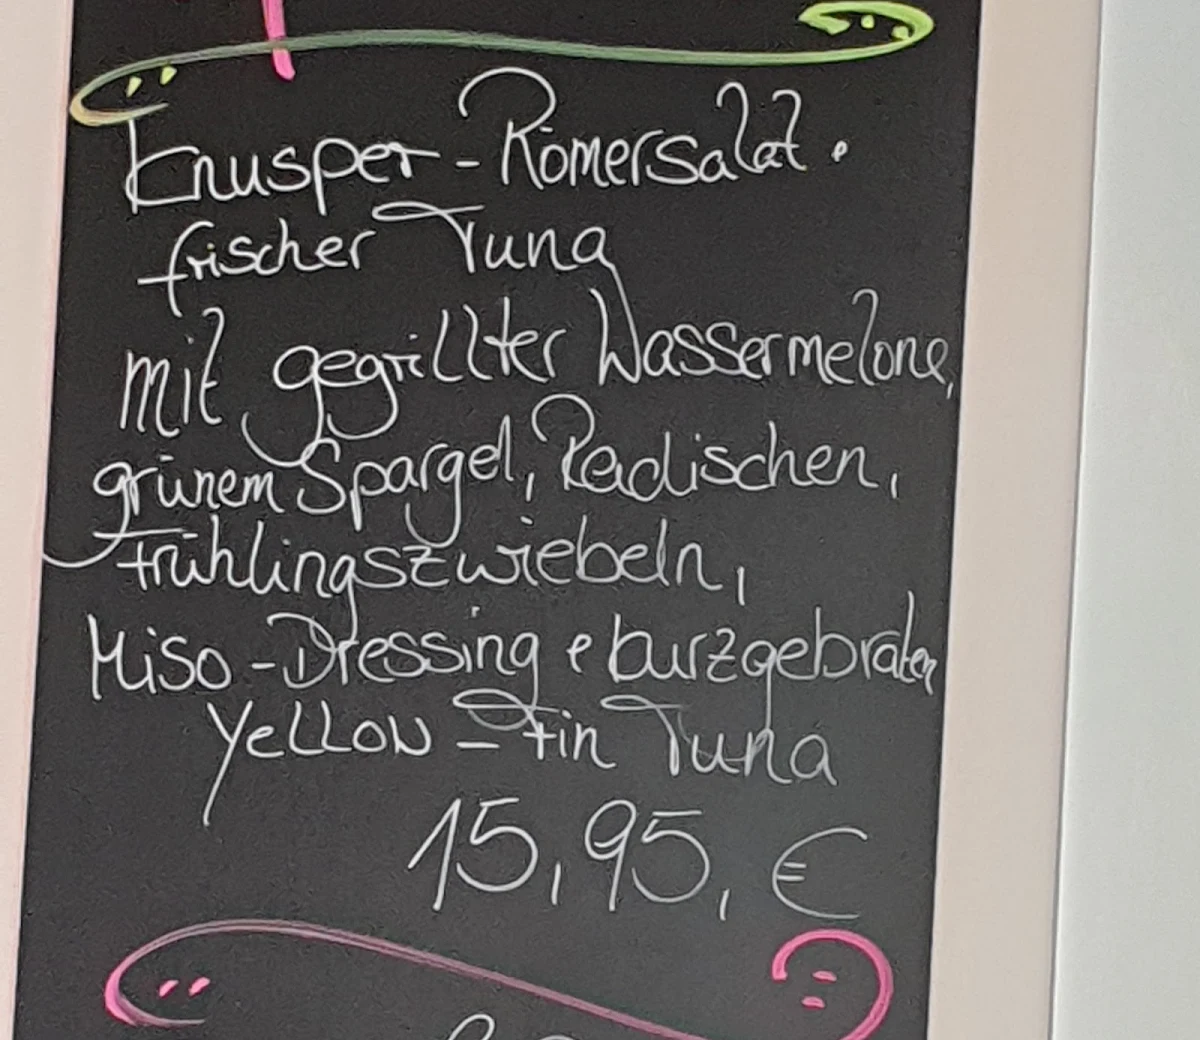 Knusper-Römersalat •
frischer Tuna
mit gegrillter Wassermelone,
grünem Spargel, Radischen,
Frühlingszwiebeln,
Miso-Dressing & kurzgebraten
Yellow-Fin Tuna
15,95,€